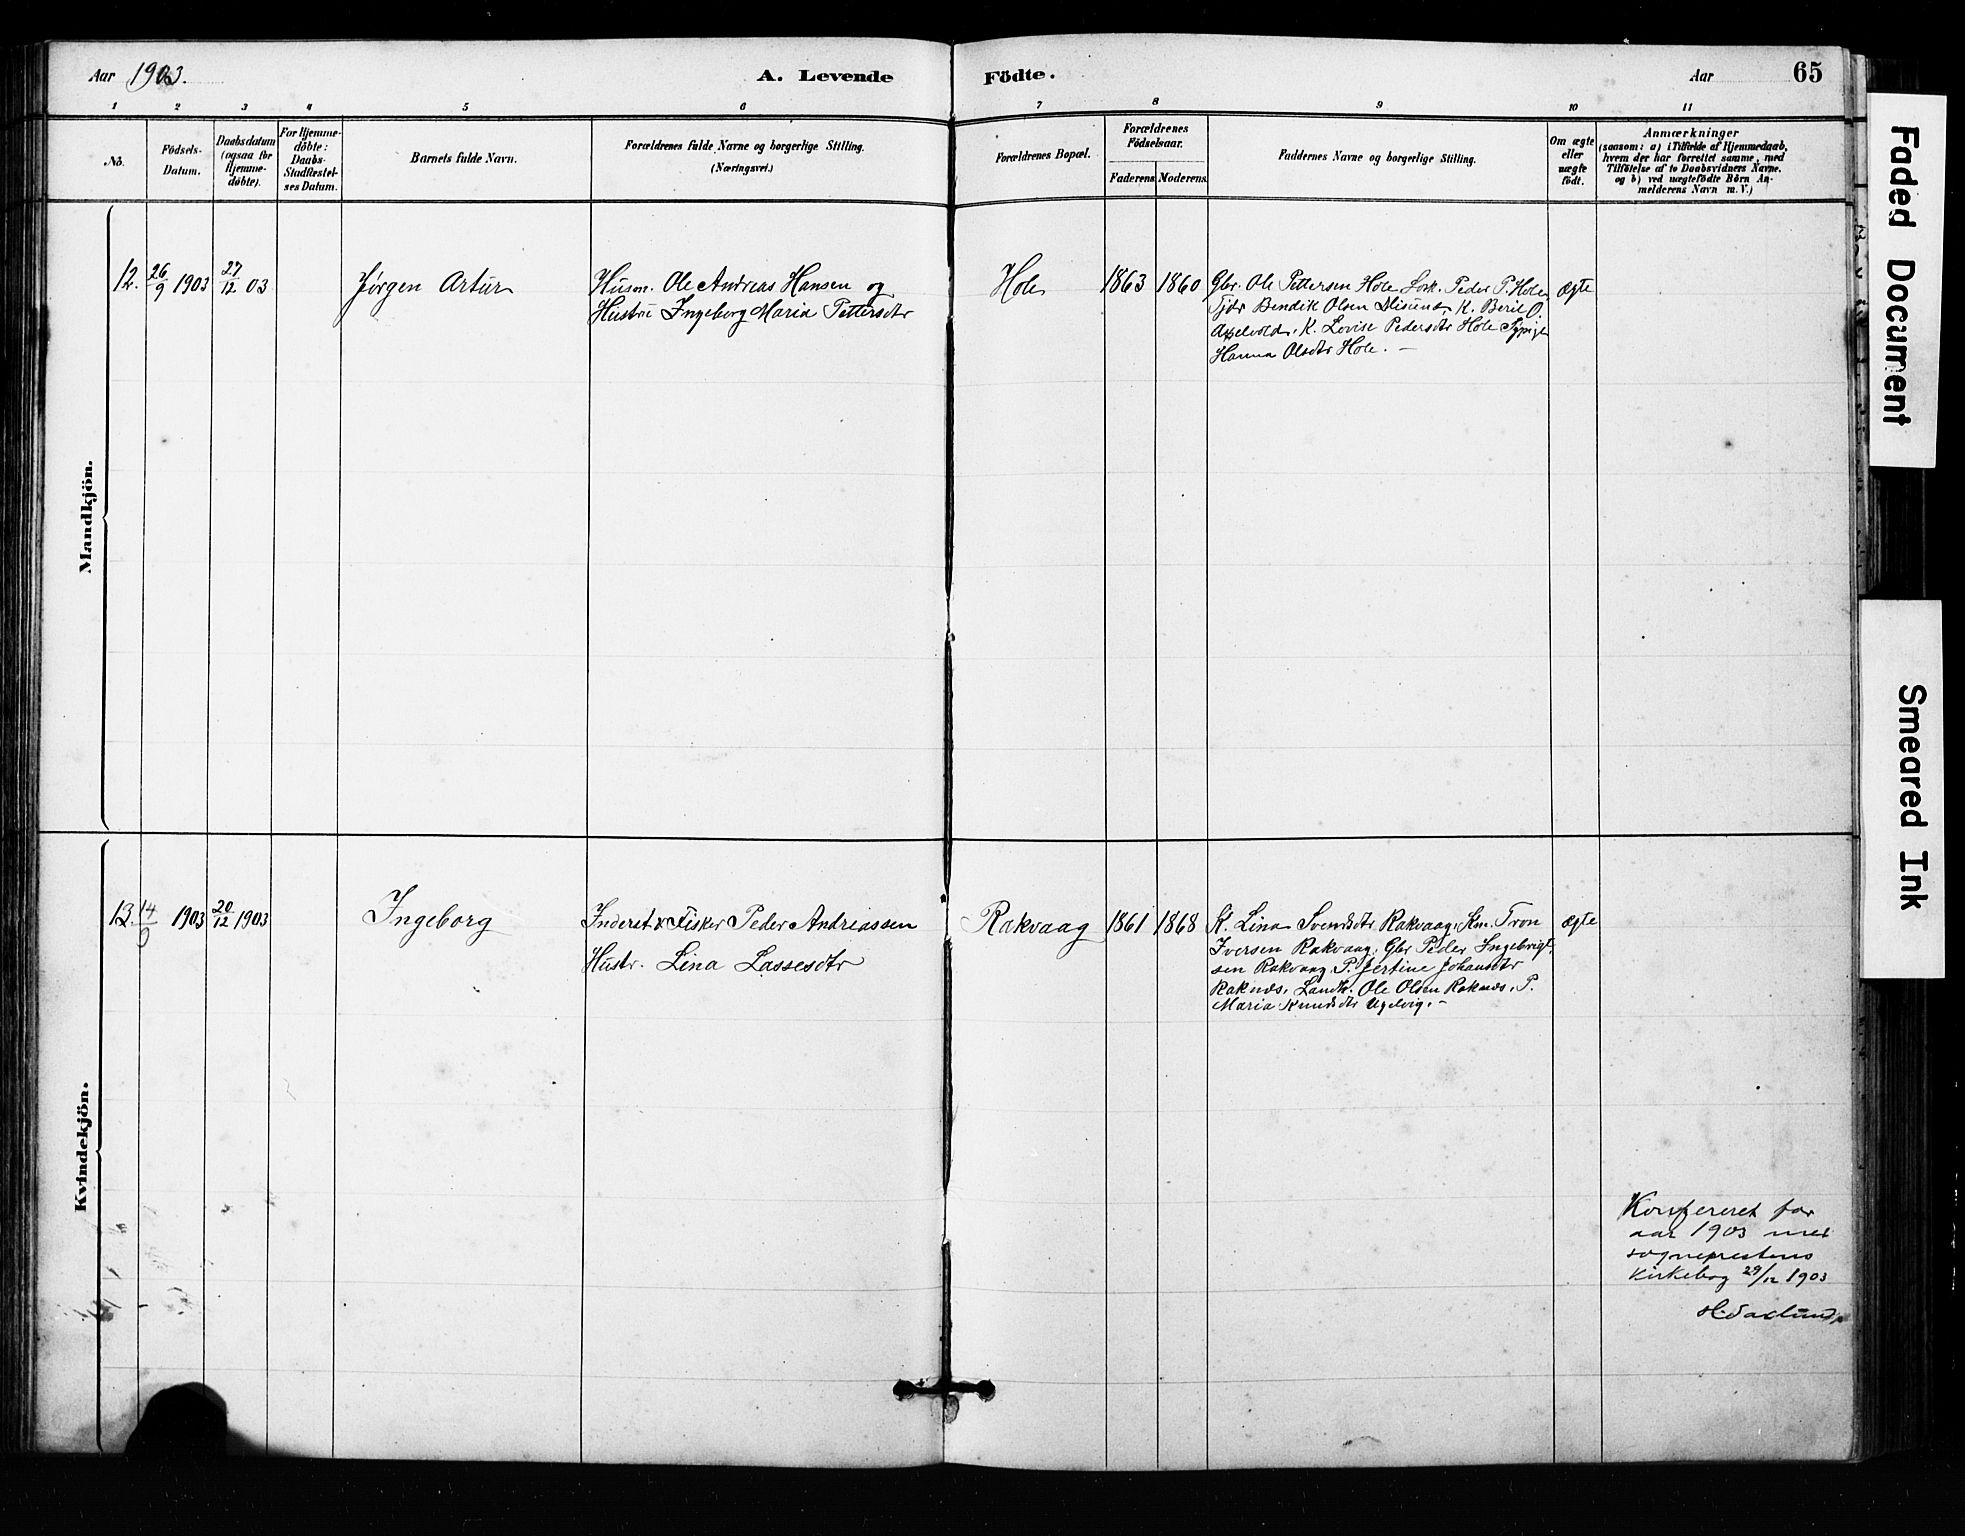 Aar 1903.
A. Levende Födte.
Aar
65
1 2 3 4 5 6 7 8 9 10 11
No.
Födsels-
Datum.
Daabsdatum
(ogsaa for
Hjemme-
döbte).
For Hjemme-
döbte:
Daabs-
Stadfæstel-
ses Datum.
Barnets fulde Navn.
Forældrenes fulde Navne og borgerlige Stilling.
(Næringsvei.)
Forældrenes Bopæl.
Forældrenes
Födselsaar.
Faderens. Moderens.
Faddernes Navne og borgerlige Stilling.
Om ægte
eller
uægte
födt.
Anmærkninger
(saasom: a) i Tilfælde af Hjemmedaab,
hvem der har forrettet samme, med
Tilföielse af to Daabsvidners Navne,
og b) ved uægtefödte Börn An-
melderens Navn m. V.)
Mandkjön.
12. 26/9 1903 27/12 03
Jørgen Artur
Husm. Ole Andreas Hansen og
Hustru Ingeborg Maria Pettersdtr
Hole
1863 1860
Gbr. Ole Pettersen Hole Peder P. Hole,
Bendik Olsen Misund, K. Berit O.
K. Lovise Pedersdtr Hole
Hanna Olsdtr Hole. —
Ægte
Kvindekjön.
13. 14/9 1903 20/12 1903
Ingeborg
Inderst & Fisker Peder Andreassen
Hustr. Lina Lassesdtr
Rakvaag
1861 1868
K. Lina Svendsdtr Rakvaag, Km. Tron
Iversen Rakvaag, Gbr Peder Ingebrigt-
sen Rakvaag, P. Jertine Johansdtr
Raknæs, Landh. Ole Olsen Raknæs, P.
Maria Knudsdtr Ugelvig. –
Ægte
Konfereret for
aar 1903 med
sogneprestens
Kirkebog 29/12 1903
Faded Document
Smeared Ink